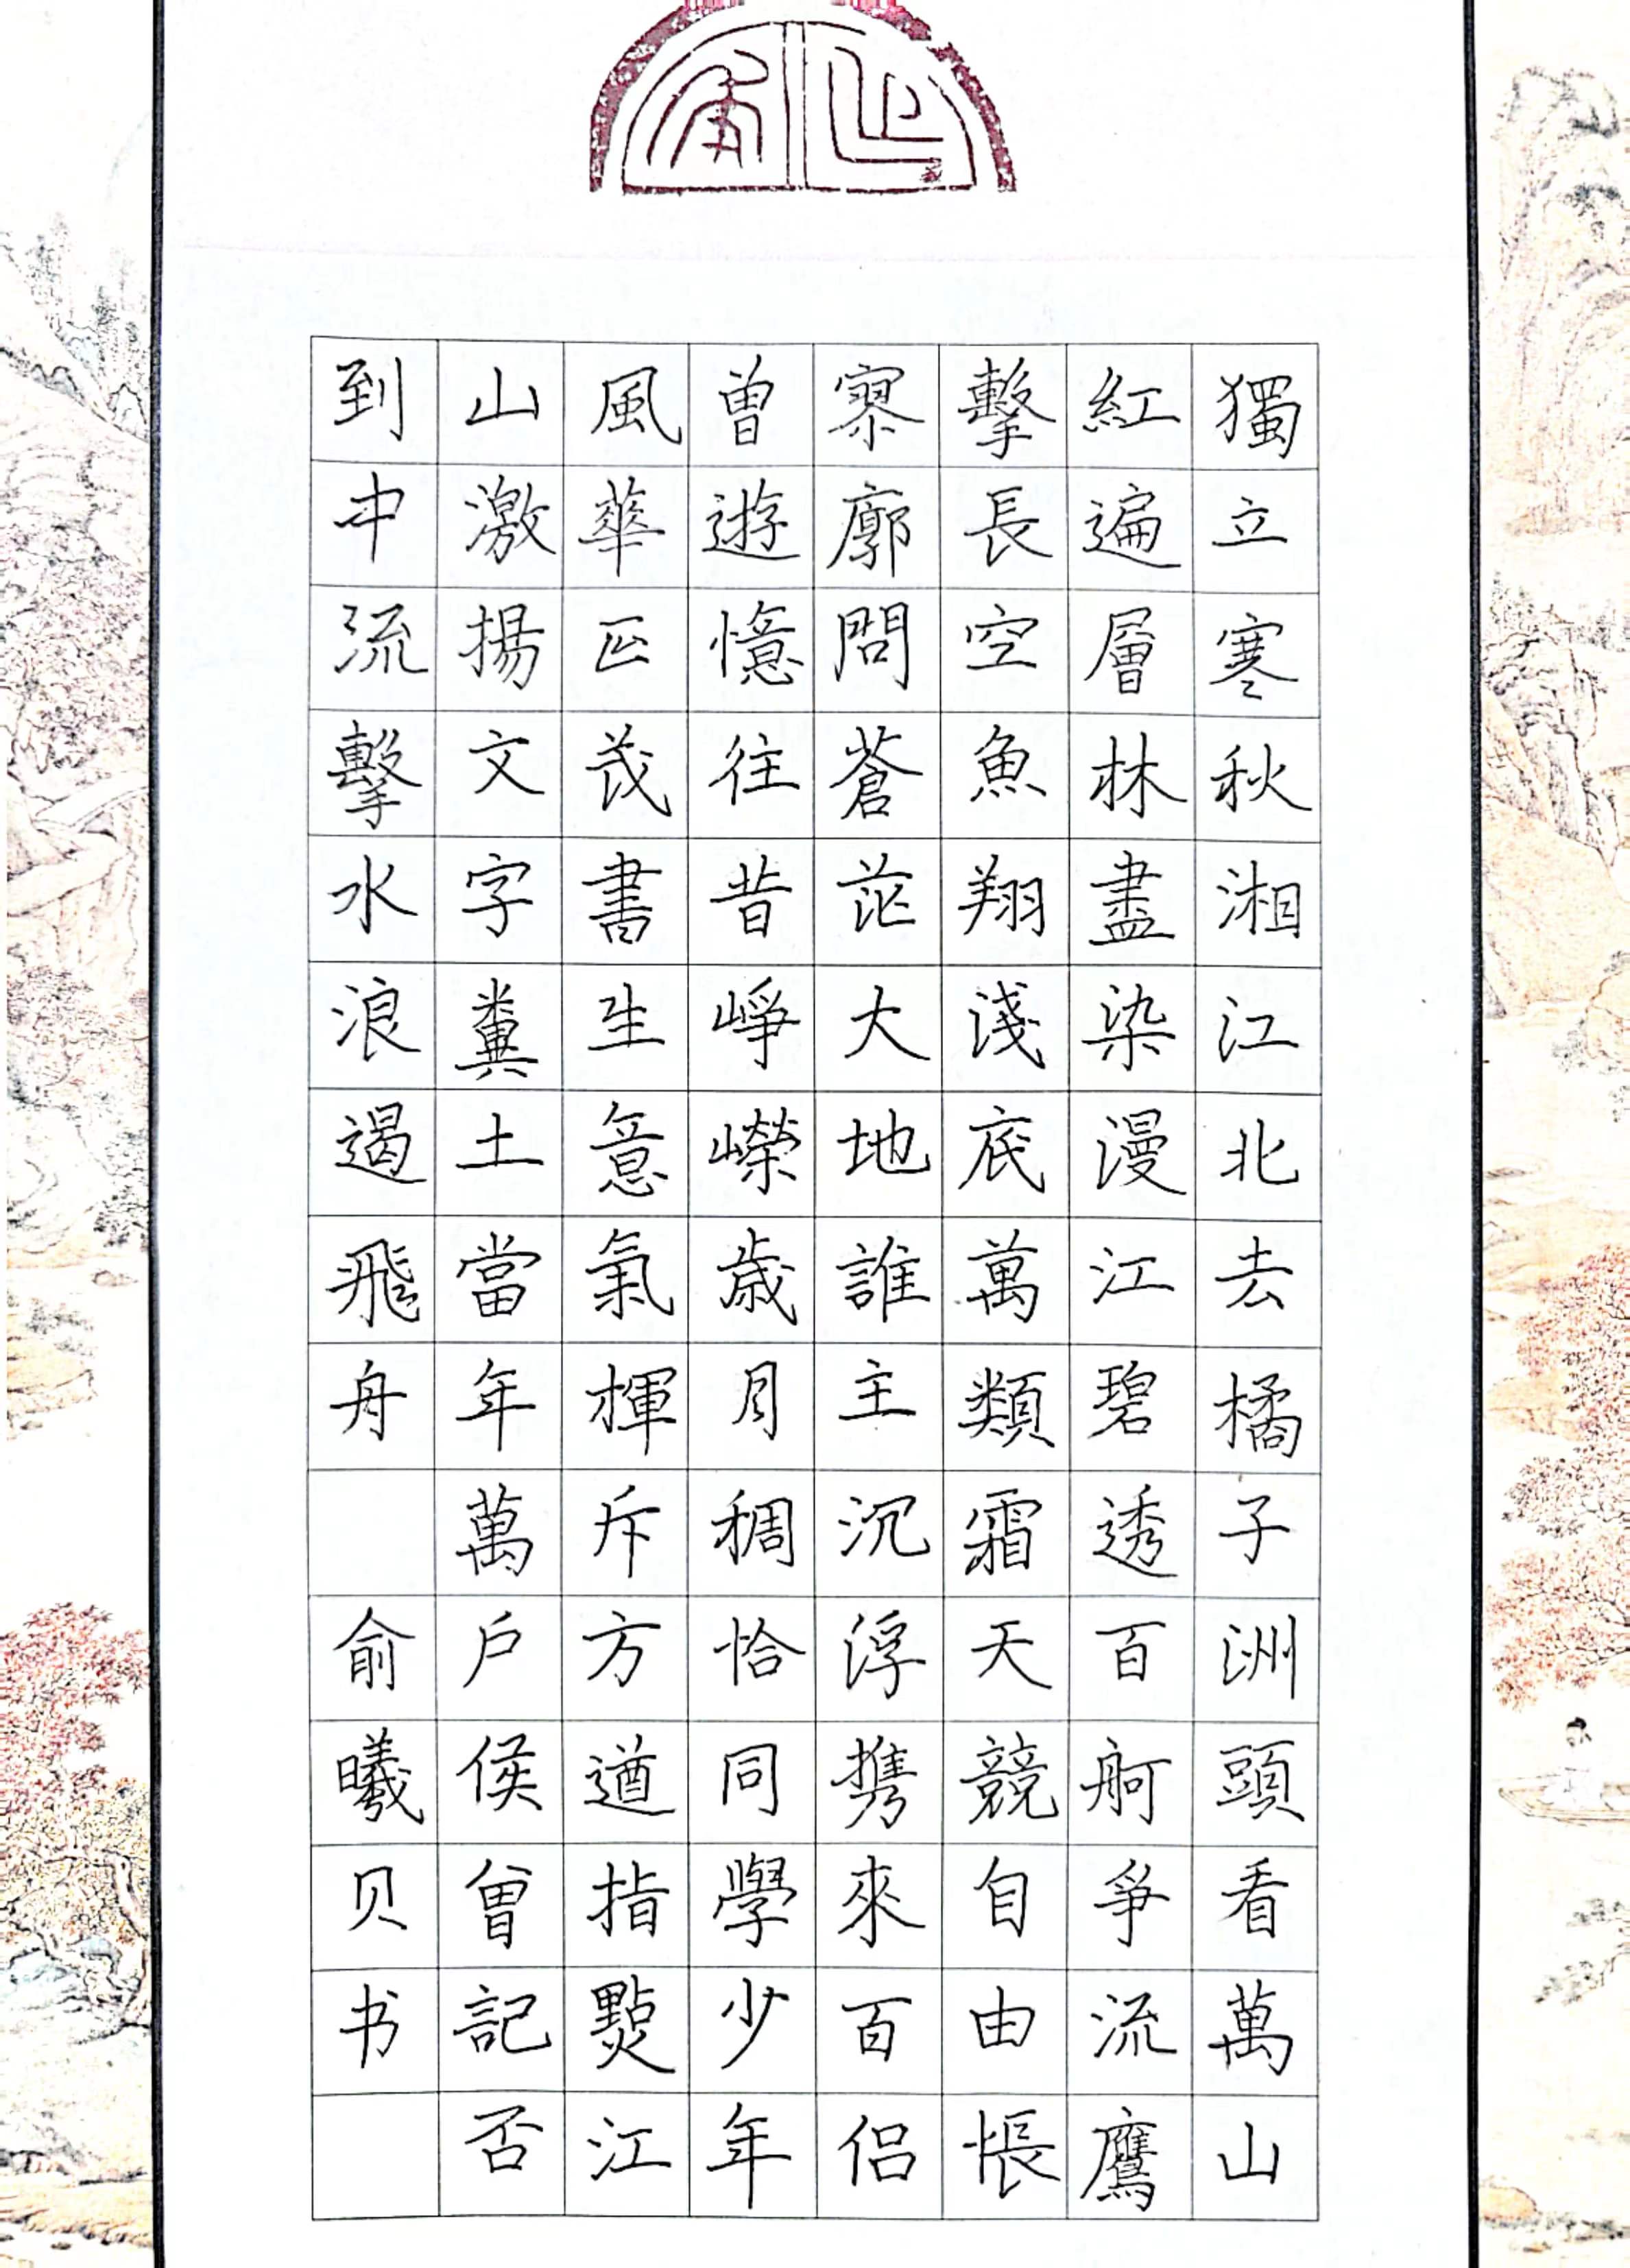 獨立寒秋湘江北去橘子洲頭看萬山
紅遍層林盡染漫江碧透百舸爭流鷹
擊長空魚翔淺底萬類霜天競自由悵
寥廓問蒼茫大地誰主沉浮携來百侣
曾遊憶往昔崢嶸歲月稠恰同學少年
風華正茂書生意氣揮斥方遒指點江
山激揚文字糞土當年萬戶侯曾記否
到中流擊水浪遏飛舟 俞曦贝书